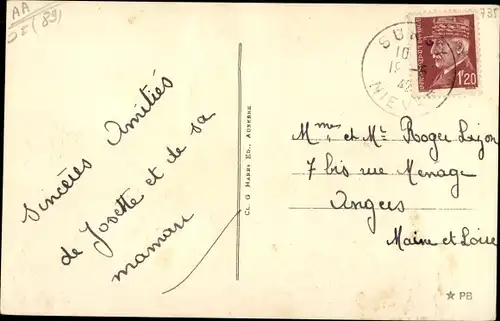 AA
(89)
735
Sincères Amitiés
de Josette et de sa
maman
CL. G. HAMRY ED., AUXERRE
NIEVRE
1f20
Mme et Mr Roger Lizon
7 bis rue Menage
Angers
Maine et Loire
★ PB